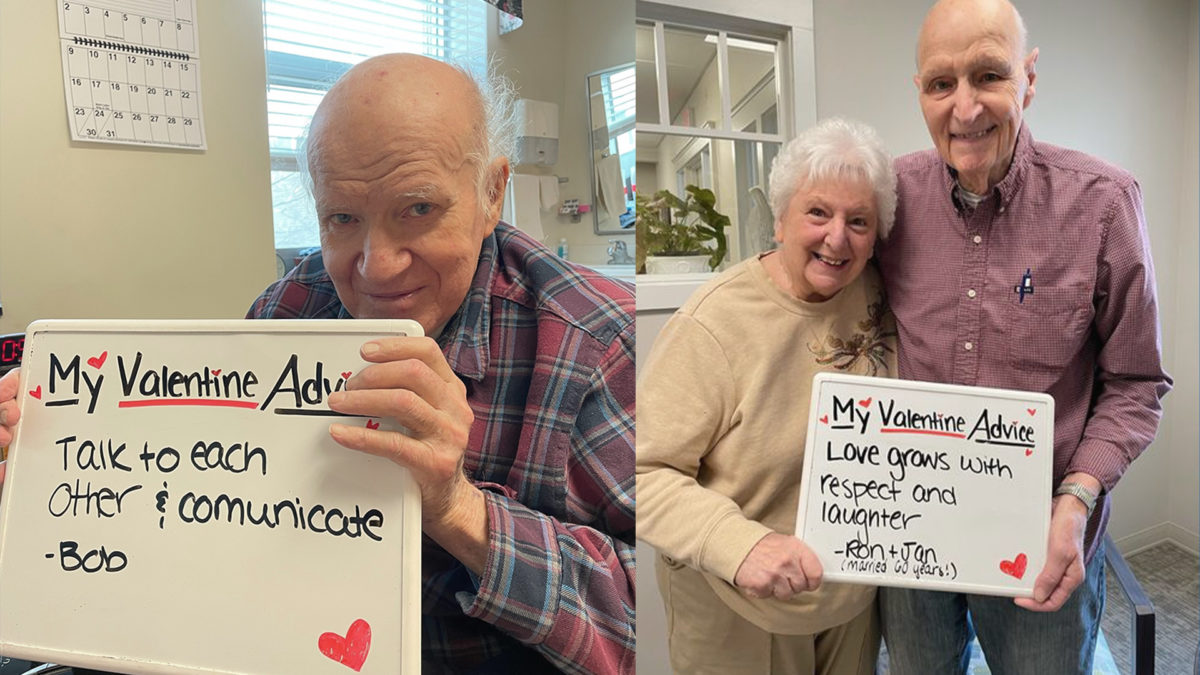 2 3 4 5 6 7 8
9 10 11 12 13 14 15
16 17 18 19 20 21 22
23 24 25 26 27 28 29
30 31
My Valentine Advi
Talk to each
Other & comunicate
-Bob
My Valentine Advice
Love grows with
respect and
laugnter
-Ron + Jan
(married 60 years!)